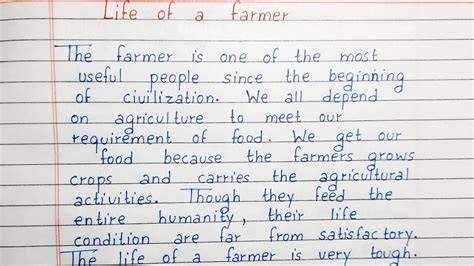 Life of a farmer
The farmer is one of the most
useful people since the beginning
of civilization. We all depend
on agriculture to meet our
requirement of food. We get our
food because the farmers grows
crops and carries the agricultural
activities. Though they feed the
entire humanity, their life
condition are far from satisfactory.
The life of a farmer is very tough.